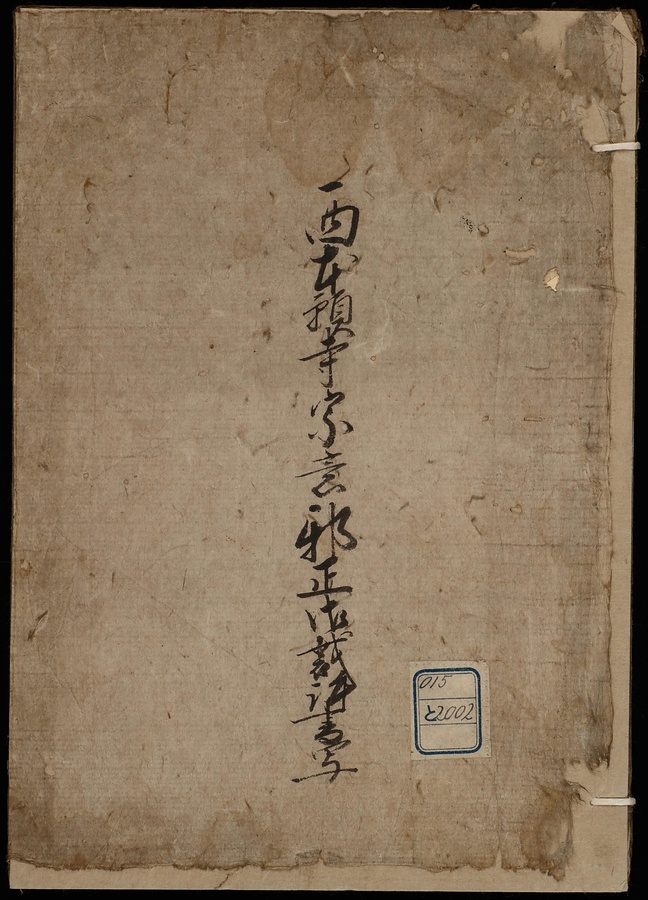 西本願寺宗意邪正御裁許書写
015
と2002